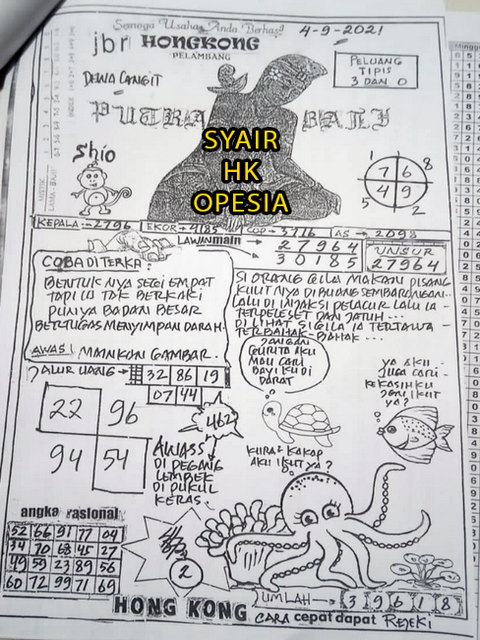 Semoga Usaha Anda Berhasil
4-9-2021
jbr HONGKONG
PELAMBANG
DEWA LANGIT
PELUANG
TIPIS
3 DAN 0
PUTRA BALI
SYAIR
HK
OPESIA
Shio
1 7 6 8
4 9
5 2
KEPALA=2796 EKOR=4185 COP=3716 AS=2098
LAWAN main
27964
30185
UNSUR
27964
COBA DI TERKA:
BENTUK NYA SEGI EMPAT
TAPI IA TAK BERKAKI
PUNYA BADAN BESAR
BERTUGAS MENYIMPAN DARAH.
AWAS! MAINKAN GAMBAR.
SI ORANG GILA MAKAN PISANG
KULIT NYA DI BUANG SEMBARANGAN...
LALU DI INJAK SI PELACUR LALU IA
TERPELESET DAN JATUH...
DI LIHAT SI GILA IA TERTAWA
TERBAHAK-BAHAK...
JALUR UANG
32 86 19
07 44
JANGAN
GURITA AKU
MAU CARI
BAYI KU DI
DARAT
YA AKU
JUGA CARI
KEKASIHKU
YA?
22 96
94 54
462
AWASS
DI PEGANG
LEMBEK
DI PUKUL
KERAS.
KURA KAKAP
AKU IKUT YA?
angka rasional
52 66 91 77 04
34 70 68 45 27
49 59 23 89 56
60 72 99 71 69
2
JUMLAH 39618
HONG KONG CARA cepat dapat REJEKI